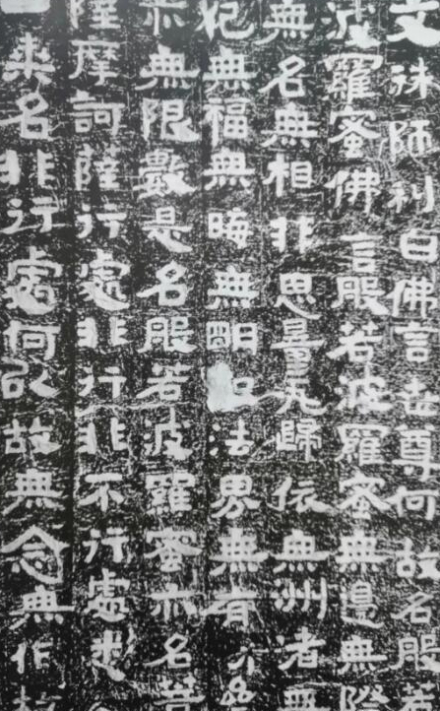 文殊師利白佛言世尊何故名般若
波羅蜜佛言般若波羅蜜無邊無際
無名無相非思量无歸依無洲渚無
犯無福無晦無明法界無有分
亦無限數是名般若波羅蜜亦名菩
薩摩訶薩行處非行非不行處悉
一乘名非行處何以故無念無作故